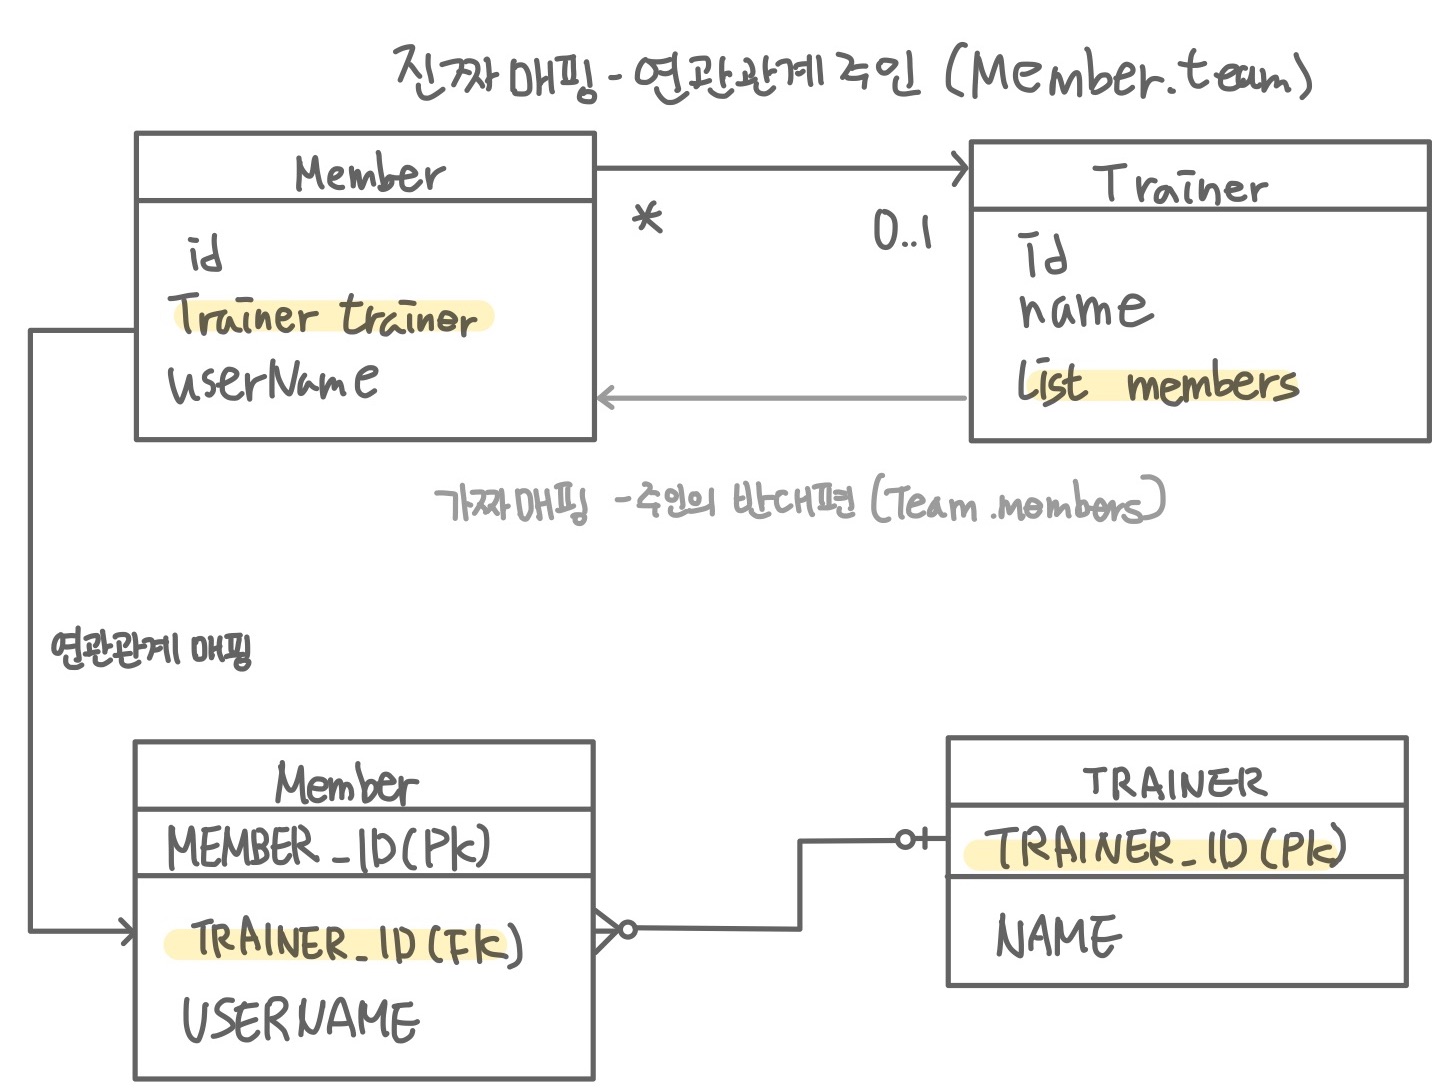 진짜 매핑 - 연관관계 주인 (Member.team)
Member
id
Trainer trainer
userName
*
0..1
Trainer
id
name
List members
가짜 매핑 - 주인의 반대편 (Team.members)
연관관계 매핑
Member
MEMBER_ID(PK)
TRAINER_ID(FK)
USERNAME
TRAINER
TRAINER_ID(PK)
NAME